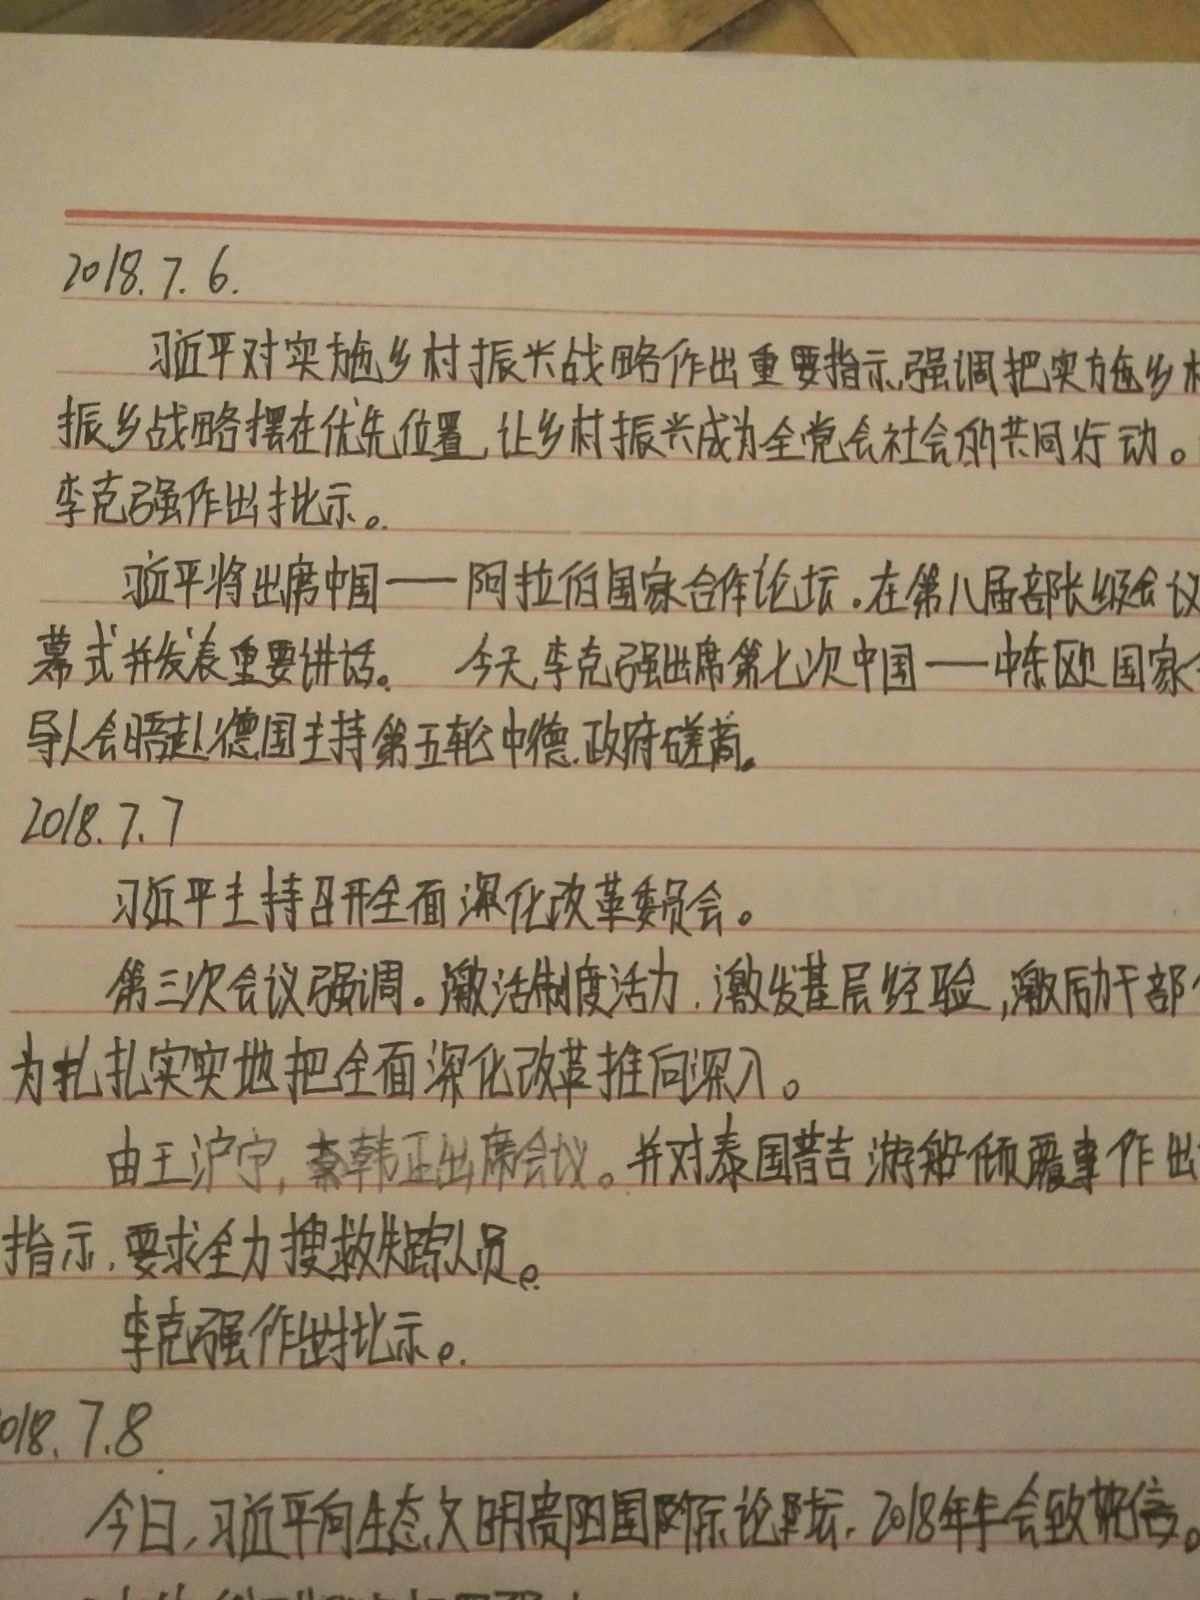 2018.7.6.
习近平对实施乡村振兴战略作出重要指示,强调把实施乡村
振乡战略摆在优先位置,让乡村振兴成为全党会社会的共同行动。
李克强作出批示。
习近平将出席中国——阿拉伯国家合作论坛.在第八届部长级会议
幕式并发表重要讲话。 今天,李克强出席第七次中国——中东欧国家
导人会晤赴德国主持第五轮中德.政府磋商。
2018.7.7
习近平主持召开全面深化改革委员会。
第三次会议强调。激活制度活力.激发基层经验,激励干部
为扎扎实实地把全面深化改革推向深入。
由王沪宁,韩正出席会议。并对泰国普吉游船倾覆事作出
指示.要求全力搜救失踪人员。
李克强作出批示。
018.7.8
今日,习近平向生态文明贵阳国际论坛.2018年年会致贺信。